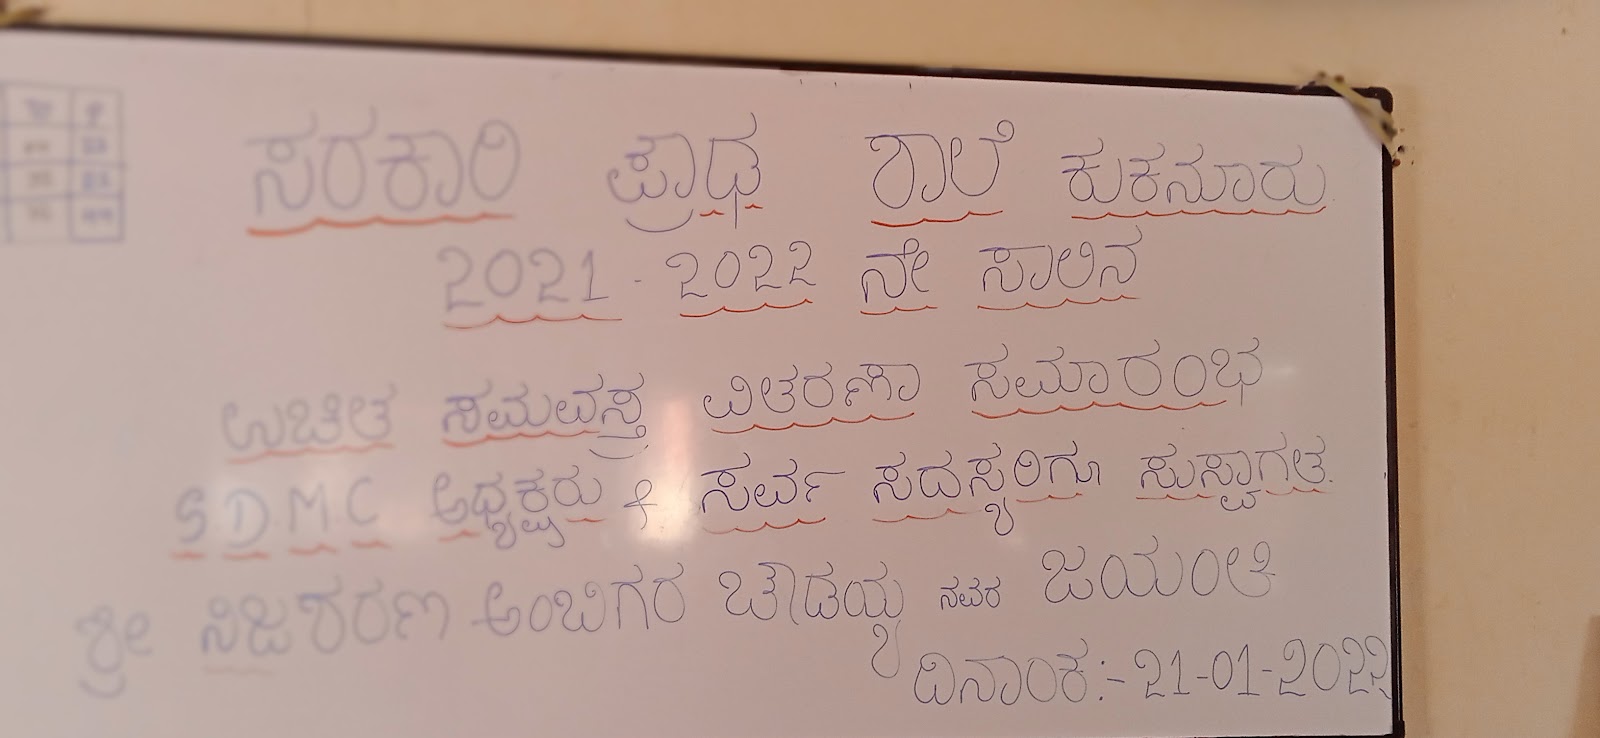 ಸರಕಾರಿ ಪ್ರಾಥ ಶಾಲೆ ಕುಕನೂರು
2021-2022 ನೇ ಸಾಲಿನ
ಉಚಿತ ಸಮವಸ್ತ್ರ ವಿತರಣಾ ಸಮಾರಂಭ
SDMC ಅಧ್ಯಕ್ಷರು & ಸರ್ವ ಸದಸ್ಯರಿಗೂ ಸುಸ್ವಾಗತ.
ಶ್ರೀ ನಿಜಶರಣ ಅಂಬಿಗರ ಚೌಡಯ್ಯ ಜಯಂತಿ
ದಿನಾಂಕ:-21-01-2022